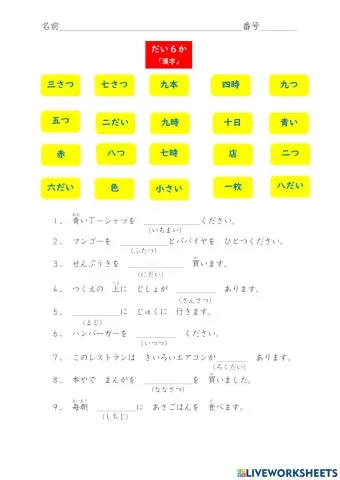 名前____________________番号________
だい6か
『漢字』
三さつ 七さつ 九本 四時 九つ
五つ 二だい 九時 十日 青い
赤 八つ 七時 店 二つ
六だい 色 小さい 一枚 八だい
あお
1. 青いTーシャツを __________ください。
(いちまい)
2. マンゴーを __________とパパイヤを ひとつください。
(ふたつ)
3. せんぷうきを __________ 買います。
(にだい)
4. つくえの 上に じしょが __________ あります。
(さんさつ)
5. __________に じゅくに 行きます。
(よじ)
6. ハンバーガーを __________ ください。
(いつつ)
7. このレストランは きいろいエアコンが________ あります。
(ろくだい)
8. 本やで まんがを __________を 買いました。
(ななさつ)
まいあさ
9. 毎朝 __________に あさごはんを 食べます。
(しちじ)
LIVEWORKSHEETS